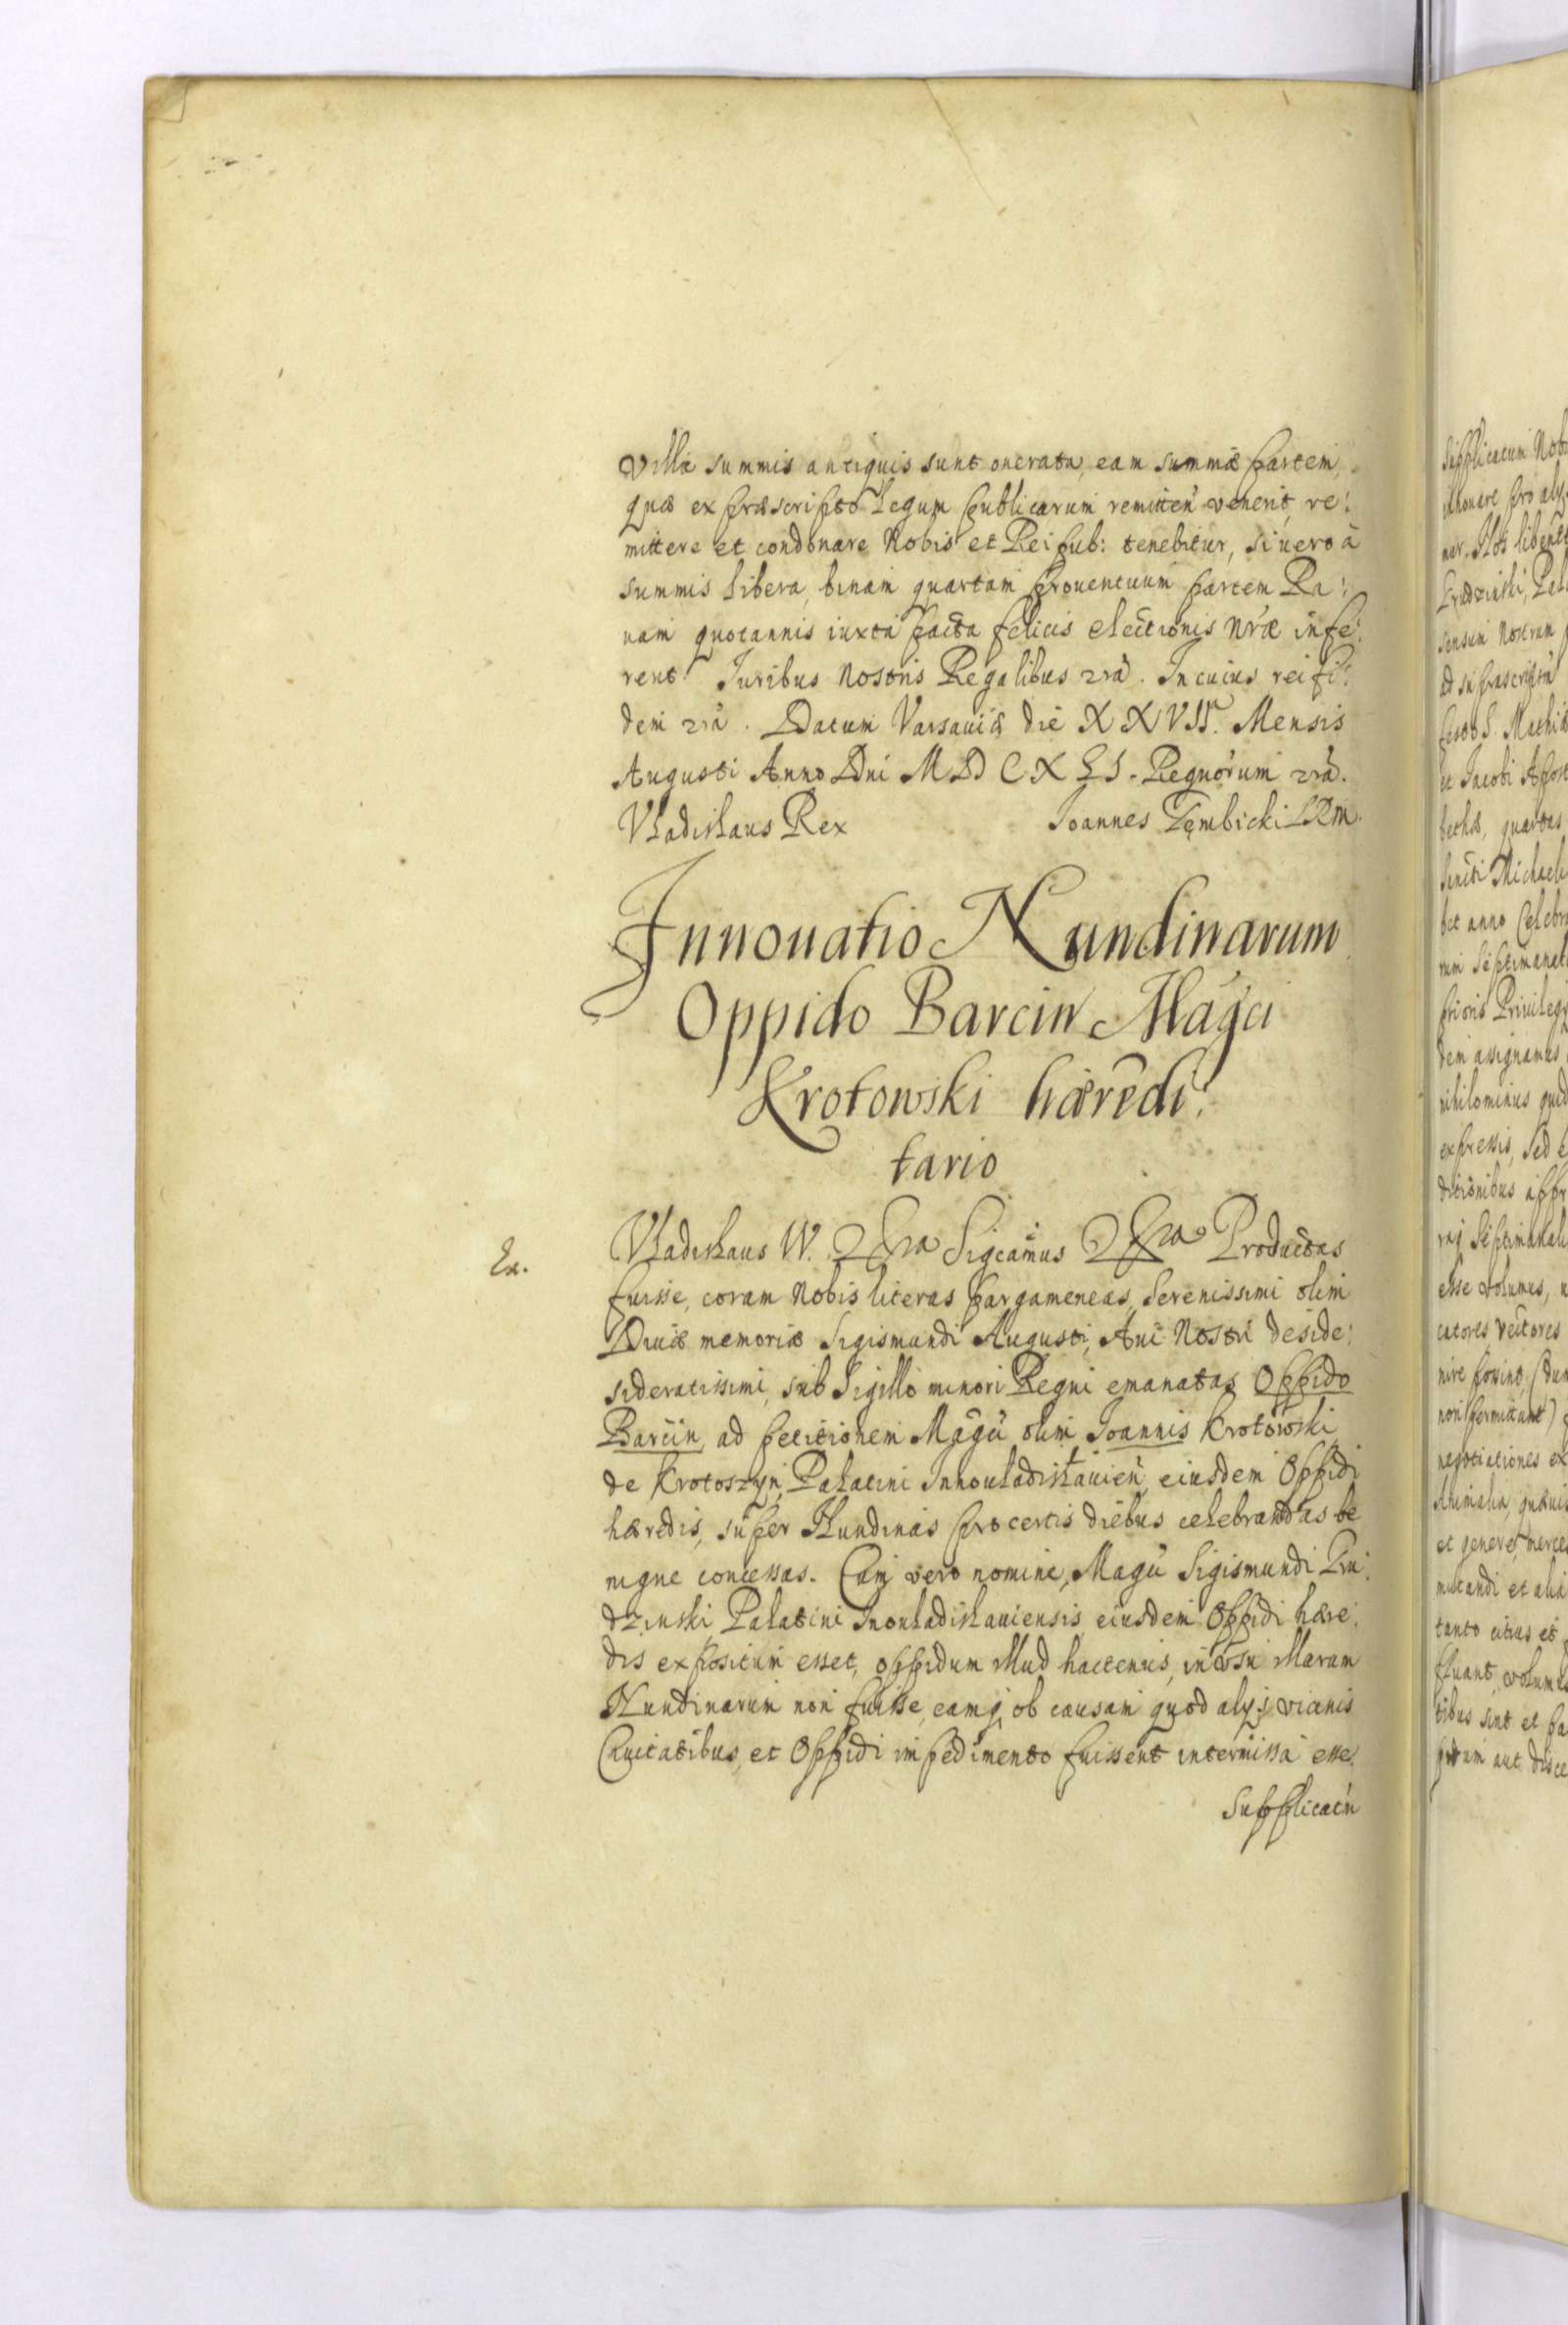 Villa summis antiquis sunt onerata, eam summæ partem,
quæ ex præscripto Legum publicarum remitten venerit, re:
mittere et condonare Nobis et Rei pub: tenebitur, si uero à
summis libera, binam quartam prouentuum partem Ra:
uam quotannis iuxta pacta felicis electionis Nræ infe:
rent. Juribus Nostris Regalibus zrã. In cuius rei fi:
dem zrã. Datum Varsauiæ die XXVII. Mensis
Augusti Anno Dni MDCXLI. Regnorum zrã.
Vladislaus Rex Joannes Łęmbicki SRM.
Innouatio Nundinarum
Oppido Barcin Magci
Krotowski hæredi:
tario
Ex.
Vladislaus IV. zra Sigcamus zra Productas
fuisse, coram Nobis literas pargameneas, Serenissimi olim
Diuæ memoriæ Sigismundi Augusti, Aui Nostri deside:
sideratissimi, sub Sigillo minori Regni emanatas Oppido
Barcin, ad petitionem Magci olim Joannis Krotowski
de Krotoszyn, Palatini Innouladislauien, eiusdem Oppidi
hæredis, super Nundinas pro certis diebus celebrandas be
nigne concessas. Cum vero nomine, Magci Sigismundi Gru:
dzinski Palatini Inouladislauiensis eiusdem Oppidi hære:
dis expositum esset, oppidum illud hactenus, in vsu illarum
Nundinarum non fuisse, eamq; ob causam quod alys vicinis
Ciuitatibus, et Oppidi impedimento fuissent intermissa esse.
Supplicatu
Supplicatum Nobis
nar. Nos libenter
Grudzinski, Pal
sensum Nostrum
festo S. Mathiæ
et Jacobi Apost
quartas
Sancti Michaeli
bet anno Celebr
rum Septimanal
prioris Privilegi
dem assignamus
nihilominus quid
expressis, sed e
ditionibus appr
esse volumus,
catores vectores
nire possint, (dum
non permittant)
negotiationes ex
Animalia, quæuis
et generis, merces
mutandi et alia
tanto citius et
fluant, volumus
tibus sint et
aut disce